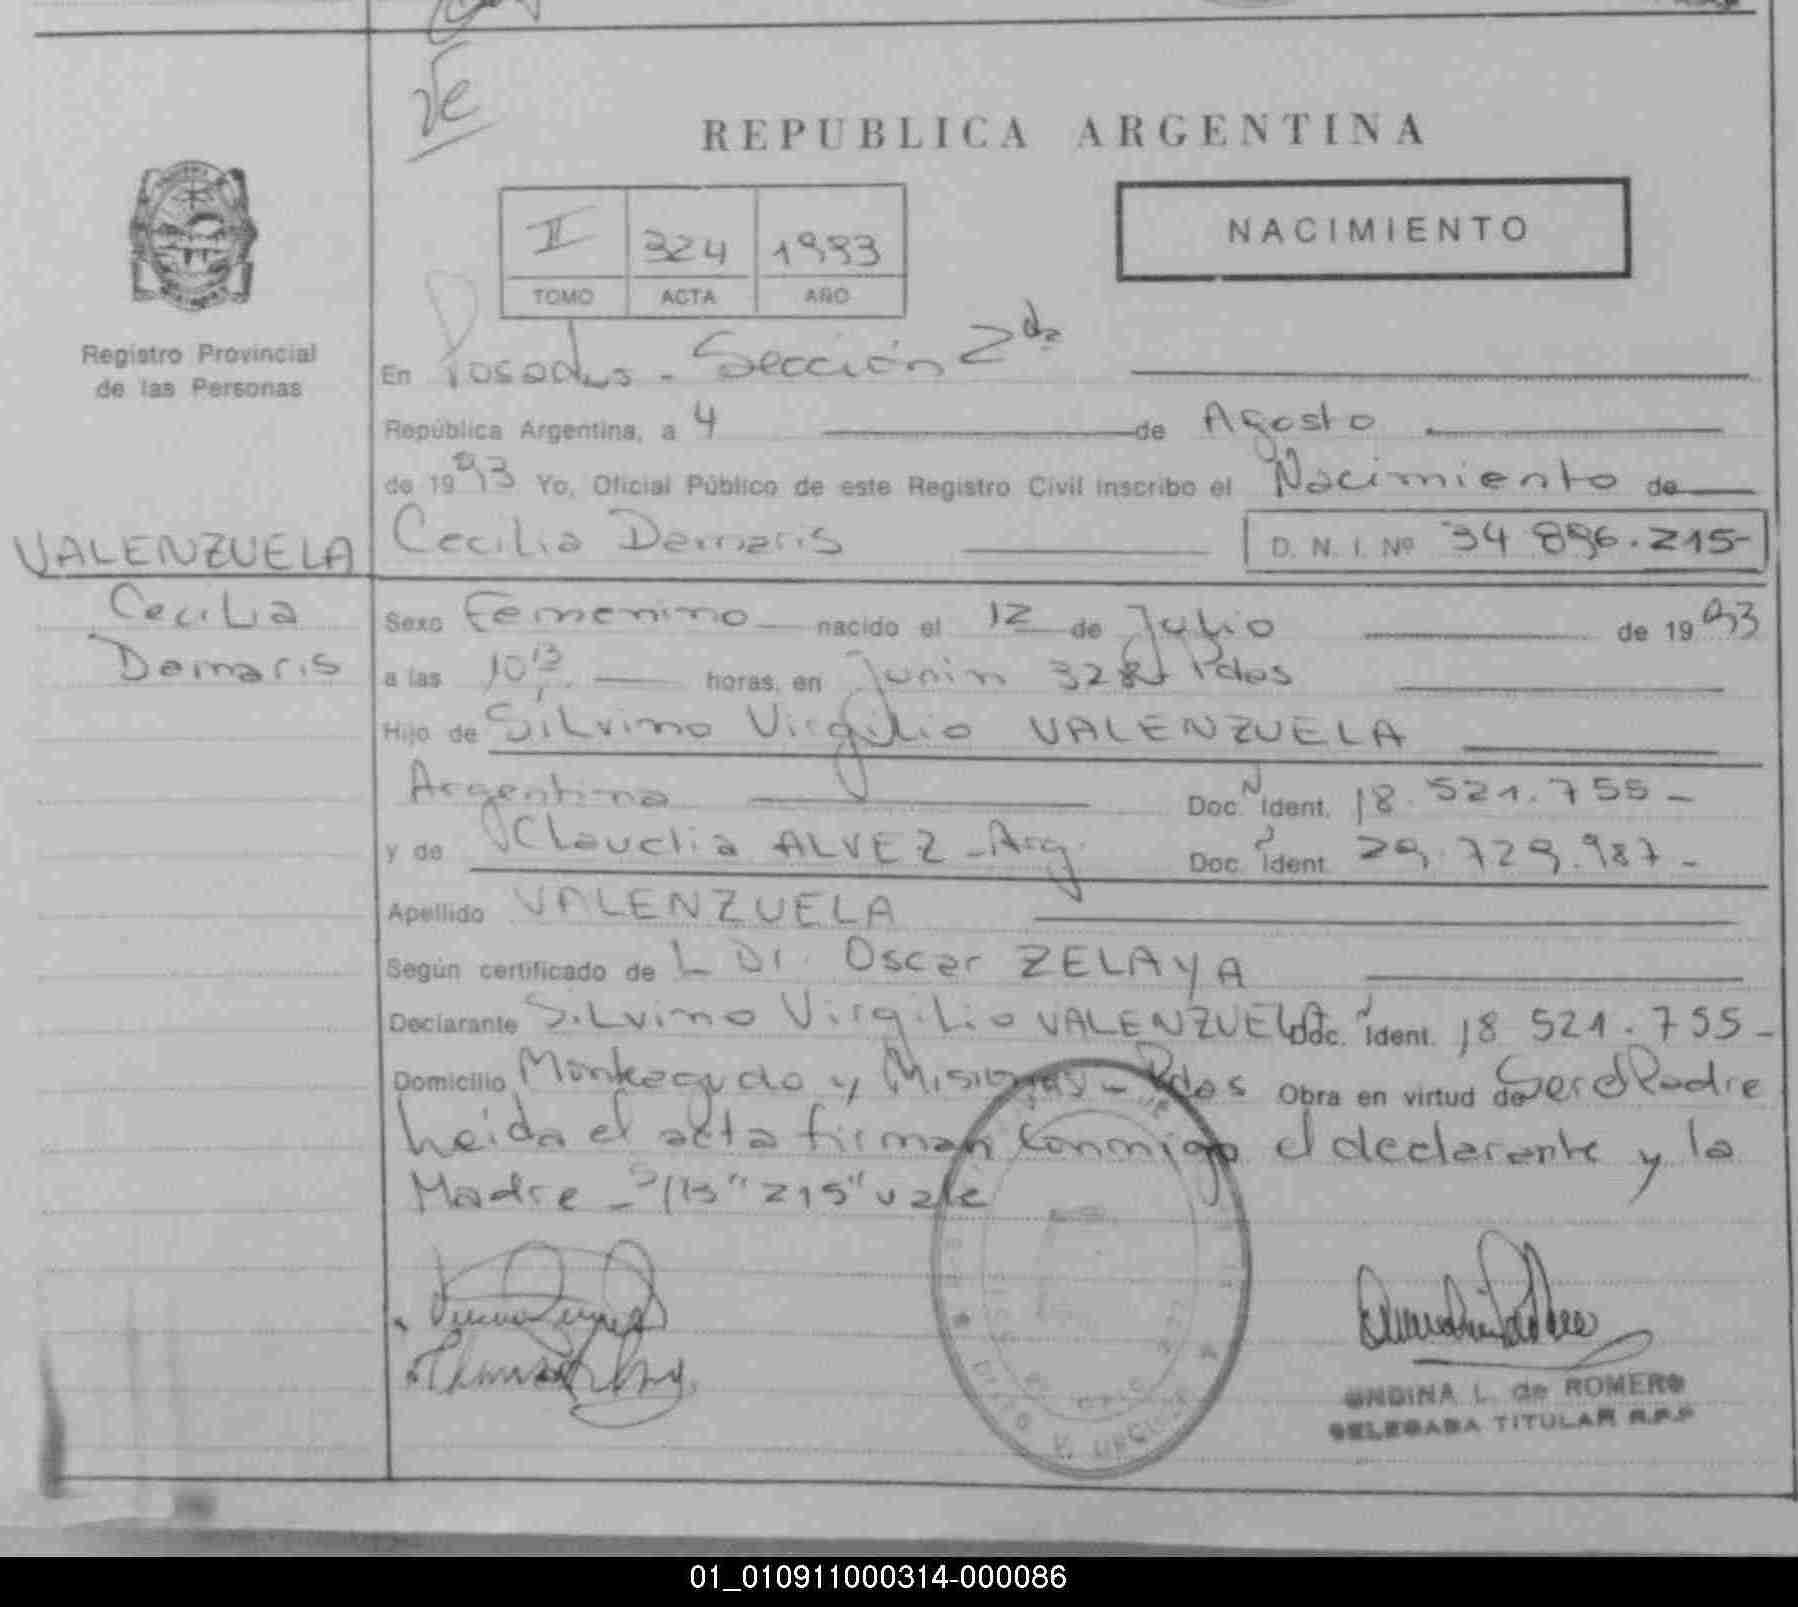 REPUBLICA ARGENTINA
NACIMIENTO
II 324 1993
TOMO ACTA AÑO
Registro Provincial
de las Personas
En Posadas - Sección 2da
República Argentina, a 4 de Agosto
de 1993 Yo, Oficial Público de este Registro Civil inscribo el Nacimiento de
VALENZUELA
Cecilia
Damaris
Cecilia Damaris D. N. I. Nº 34 896.215-
Sexo Femenino nacido el 12 de Julio de 1993
a las 10 13 horas, en Junin Pdas
Hijo de Silvino Virgilio VALENZUELA
Argentina Doc. Ident. 18.521.755-
y de Claudia ALVEZ - Arg. Doc. Ident. 29.729.987-
Apellido VALENZUELA
Según certificado de L Dr. Oscar ZELAYA
Declarante Silvino Virgilio VALENZUELA Doc. Ident. 18 521.755-
Domicilio Monteagudo y Misiones - Pdas Obra en virtud de Ser el Padre
Leida el acta firman conmigo el declarante y la
Madre - S/B "215" vale
ONDINA L. de ROMERO
DELEGADA TITULAR R.P.P
01_010911000314-000086